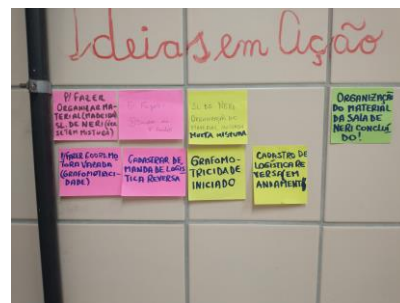 Ideias em Ação
P/ FAZER
ORGANIZAR MA-
TERIAL (MADEIRA)
SETEM MISTURA)
SL DE NERI
MUITA MISTURA
ORGANIZAÇÃO
DO MATERIAL
DA SALA DE
NERI CONCLUÍ
DO!
P/ FAZER
(GRAFOMOTRICI-
DADE)
CADASTRAR DE
MANDA DE LOGÍS
TICA REVERSA
GRAFOMO-
TRICIDADE
INICIADO
CADASTRO DE
LOGÍSTICA RE
VERSA EM
ANDAMENTO